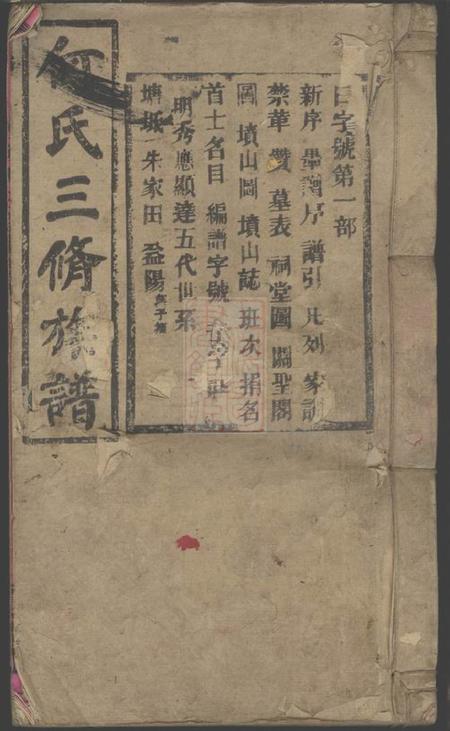 何氏三脩族譜
字號第一部
新序 譜序 譜引 凡列 家訓
禁革 贊 墓表 祠堂圖 關聖閣
圖 墳山圖 墳山誌 班次 捐名
首士名目 編譜字號
明秀應顯達五代世系
塘坵 朱家田 益陽